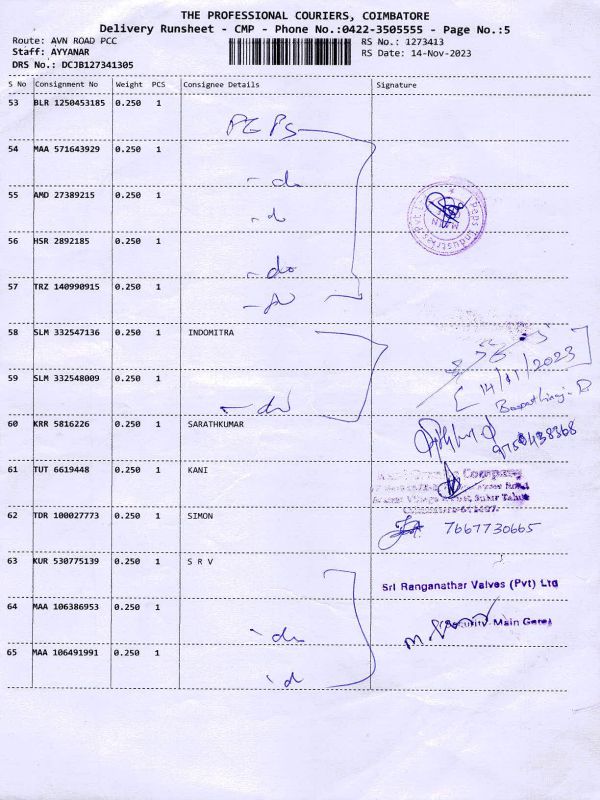 THE PROFESSIONAL COURIERS, COIMBATORE
Delivery Runsheet - CMP - Phone No.:0422-3505555 - Page No.:5
Route: AVN ROAD PCC
RS No.: 1273413
Staff: AYYANAR
RS Date: 14-Nov-2023
DRS No.: DCJB127341305
S No Consignment No Weight PCS Consignee Details Signature
53 BLR 1250453185 0.250 1
54 MAA 571643929 0.250 1
- do
55 AMD 27389215 0.250 1
- do
Peps Industries Pvt
MAIN
56 HSR 2892185 0.250 1
- do
57 TRZ 140990915 0.250 1
58 SLM 332547136 0.250 1 INDOMITRA
[14/11/2023]
59 SLM 332548009 0.250 1
- do
60 KRR 5816226 0.250 1 SARATHKUMAR
61 TUT 6619448 0.250 1 KANI
Company
62 TDR 100027773 0.250 1 SIMON
7667730665
63 KUR 530775139 0.250 1 S R V
Sri Ranganathar Valves (Pvt) Ltd
64 MAA 106386953 0.250 1
- do
Security Main Gate
65 MAA 106491991 0.250 1